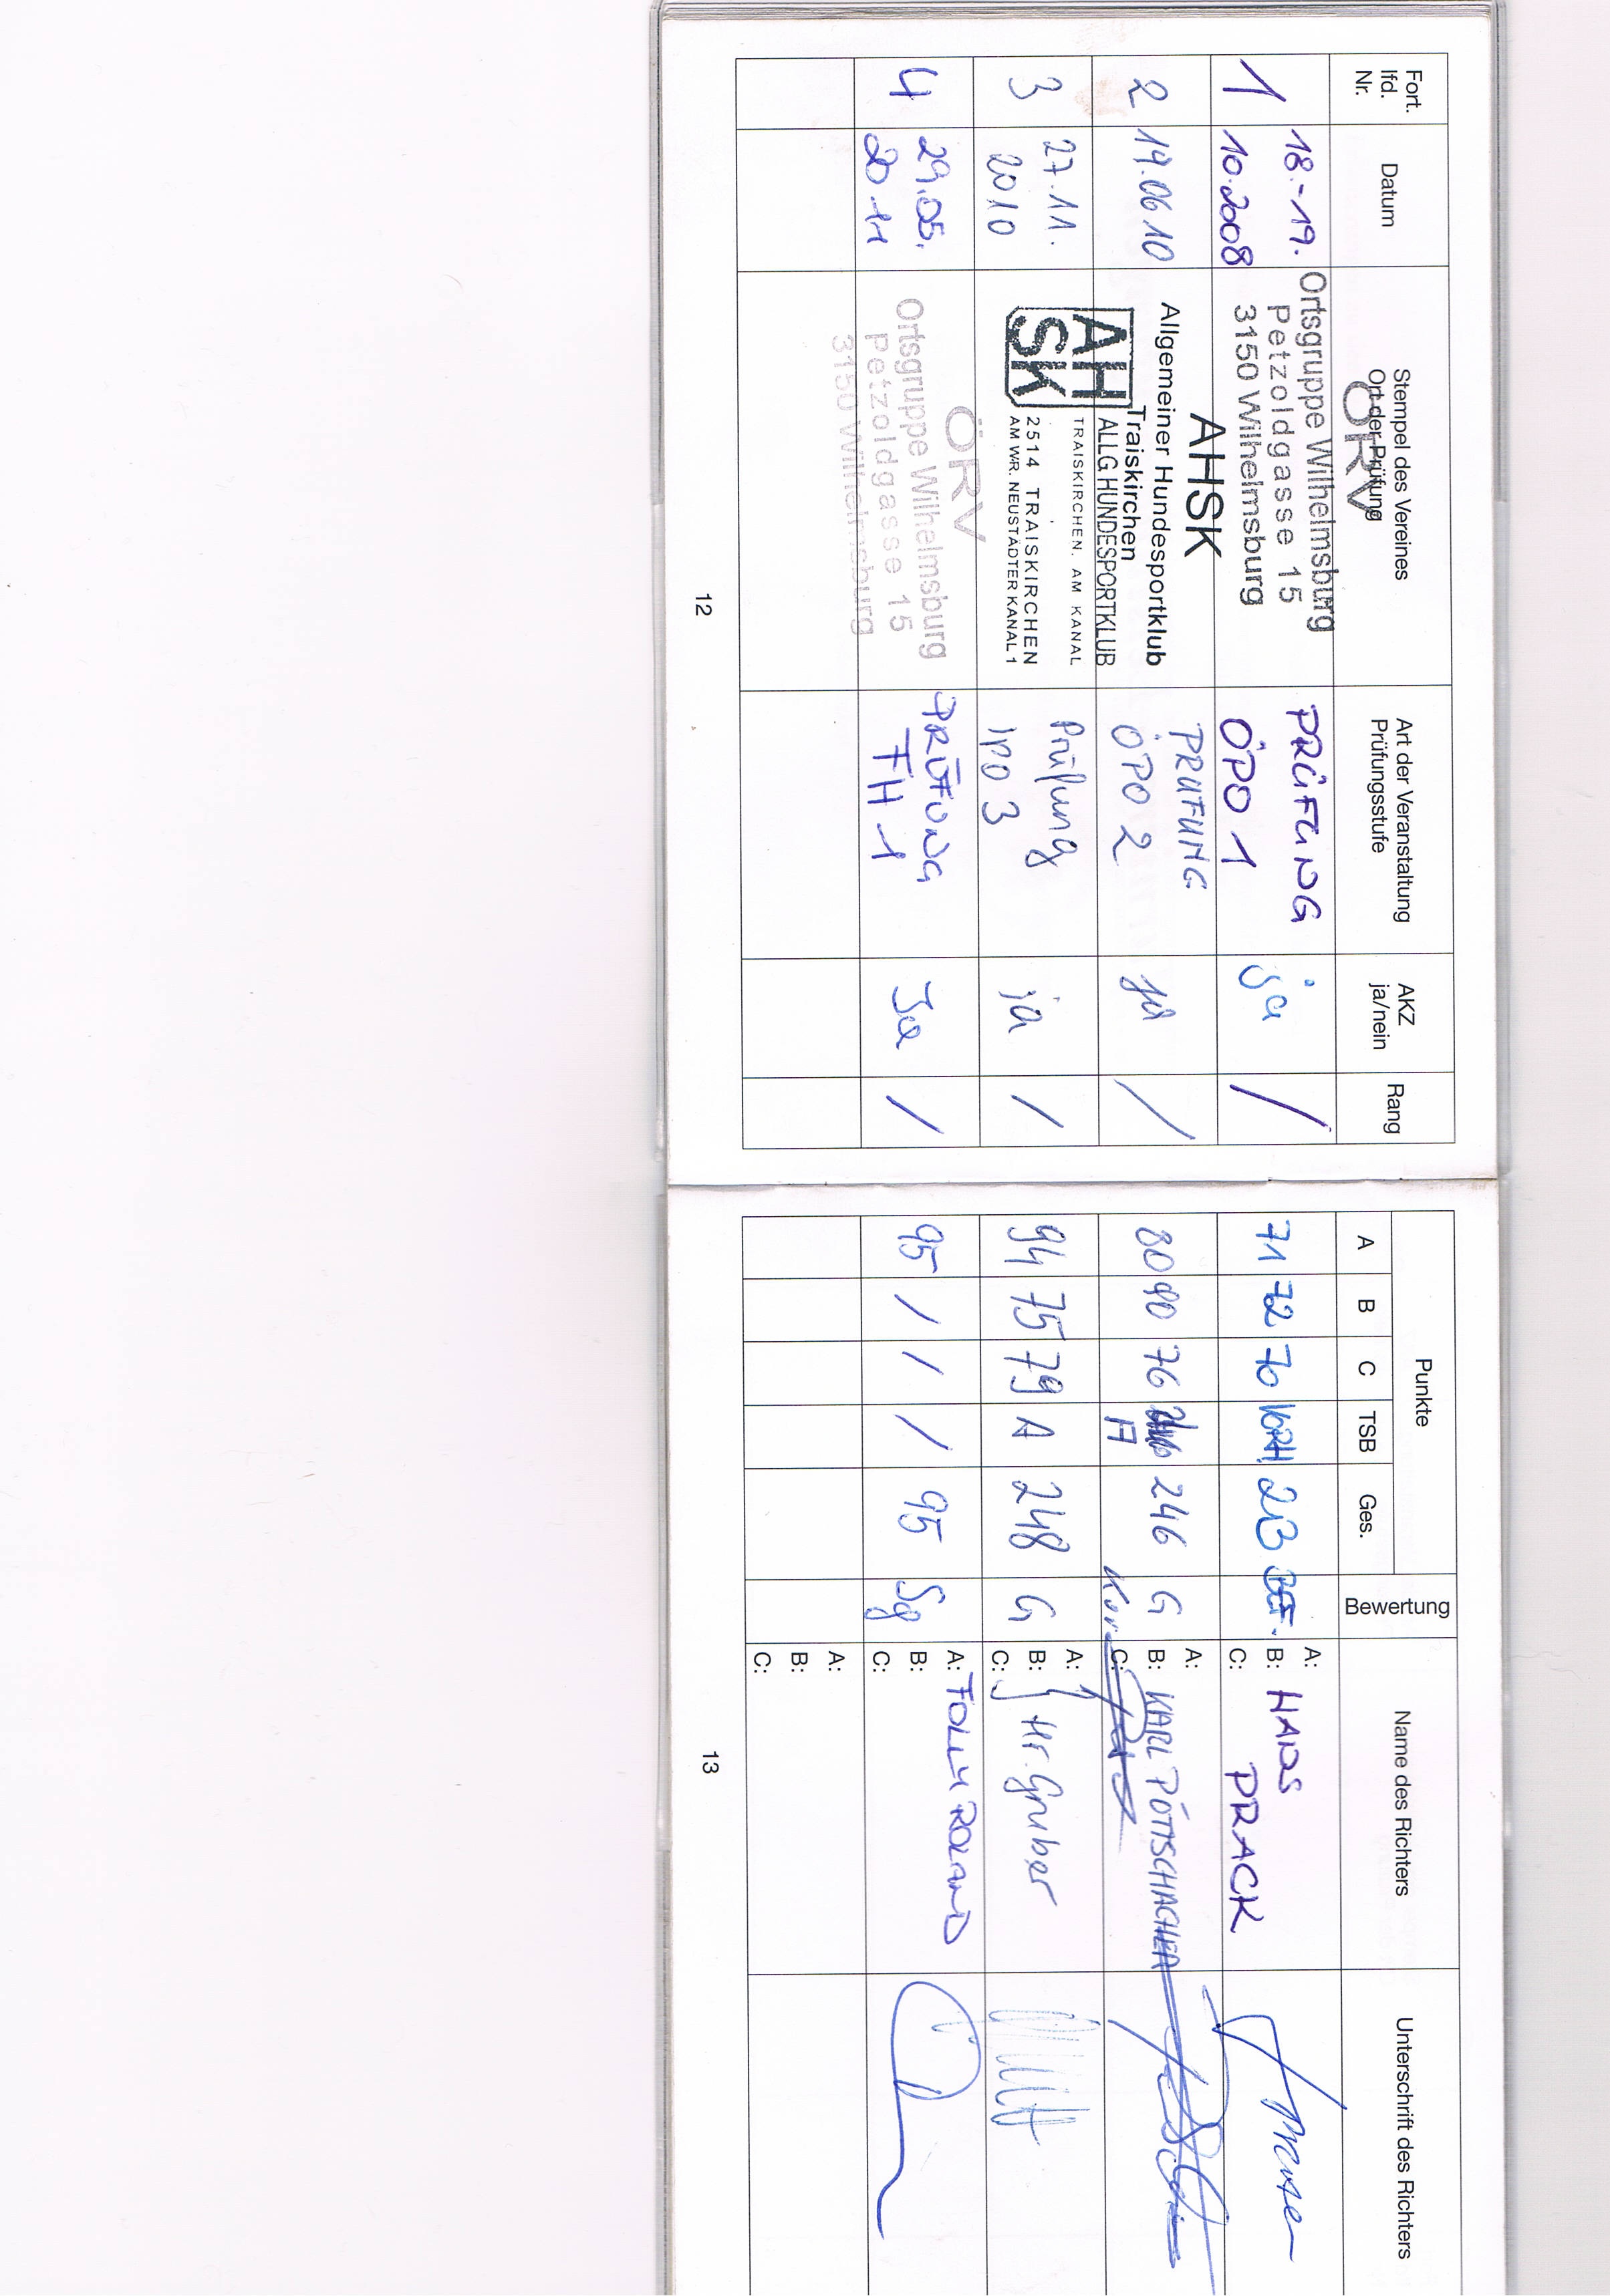 Fort. lfd. Nr.
Datum
Stempel des Vereines
Ort der Prüfung
Art der Veranstaltung
Prüfungsstufe
AKZ
ja/nein
Rang
1
18.-19.
10.2008
ÖRV
Ortsgruppe Wilhelmsburg
Petzoldgasse 15
3150 Wilhelmsburg
PRÜFUNG
ÖPO 1
ja
/
2
19.06.10
AHSK
Allgemeiner Hundesportklub
Traiskirchen
PRÜFUNG
ÖPO 2
ja
/
3
27.11.
2010
AH
SK
ALLG HUNDESPORTKLUB
TRAISKIRCHEN. AM KANAL
2514 TRAISKIRCHEN
AM WR. NEUSTÄDTER KANAL 1
Prüfung
IPO 3
ja
/
4
29.05.
2011
ÖRV
Ortsgruppe Wilhelmsburg
Petzoldgasse 15
3150 Wilhelmsburg
PRÜFUNG
FH 1
Ja
/
12
Punkte
A B C TSB Ges.
Bewertung
Name des Richters
Unterschrift des Richters
71 72 70 VORH. 213
A:
B: HANS
C: PRACK
80 90 76 246 G
A
A:
B: KARL PÖTTSCHACHER
C:
Kor.
94 75 79 A 248 G
A:
B: Hr. Gruber
C:
95 / / / 95 Sg
A: FOLLY ROLAND
B:
C:
A:
B:
C:
13